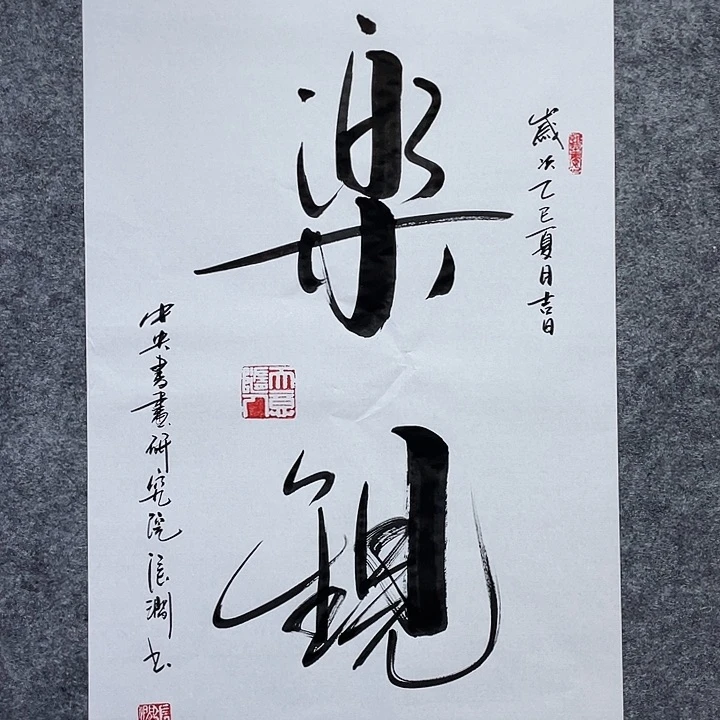 歲次乙巳夏月吉日
樂觀
中央書畫研究院張澗書